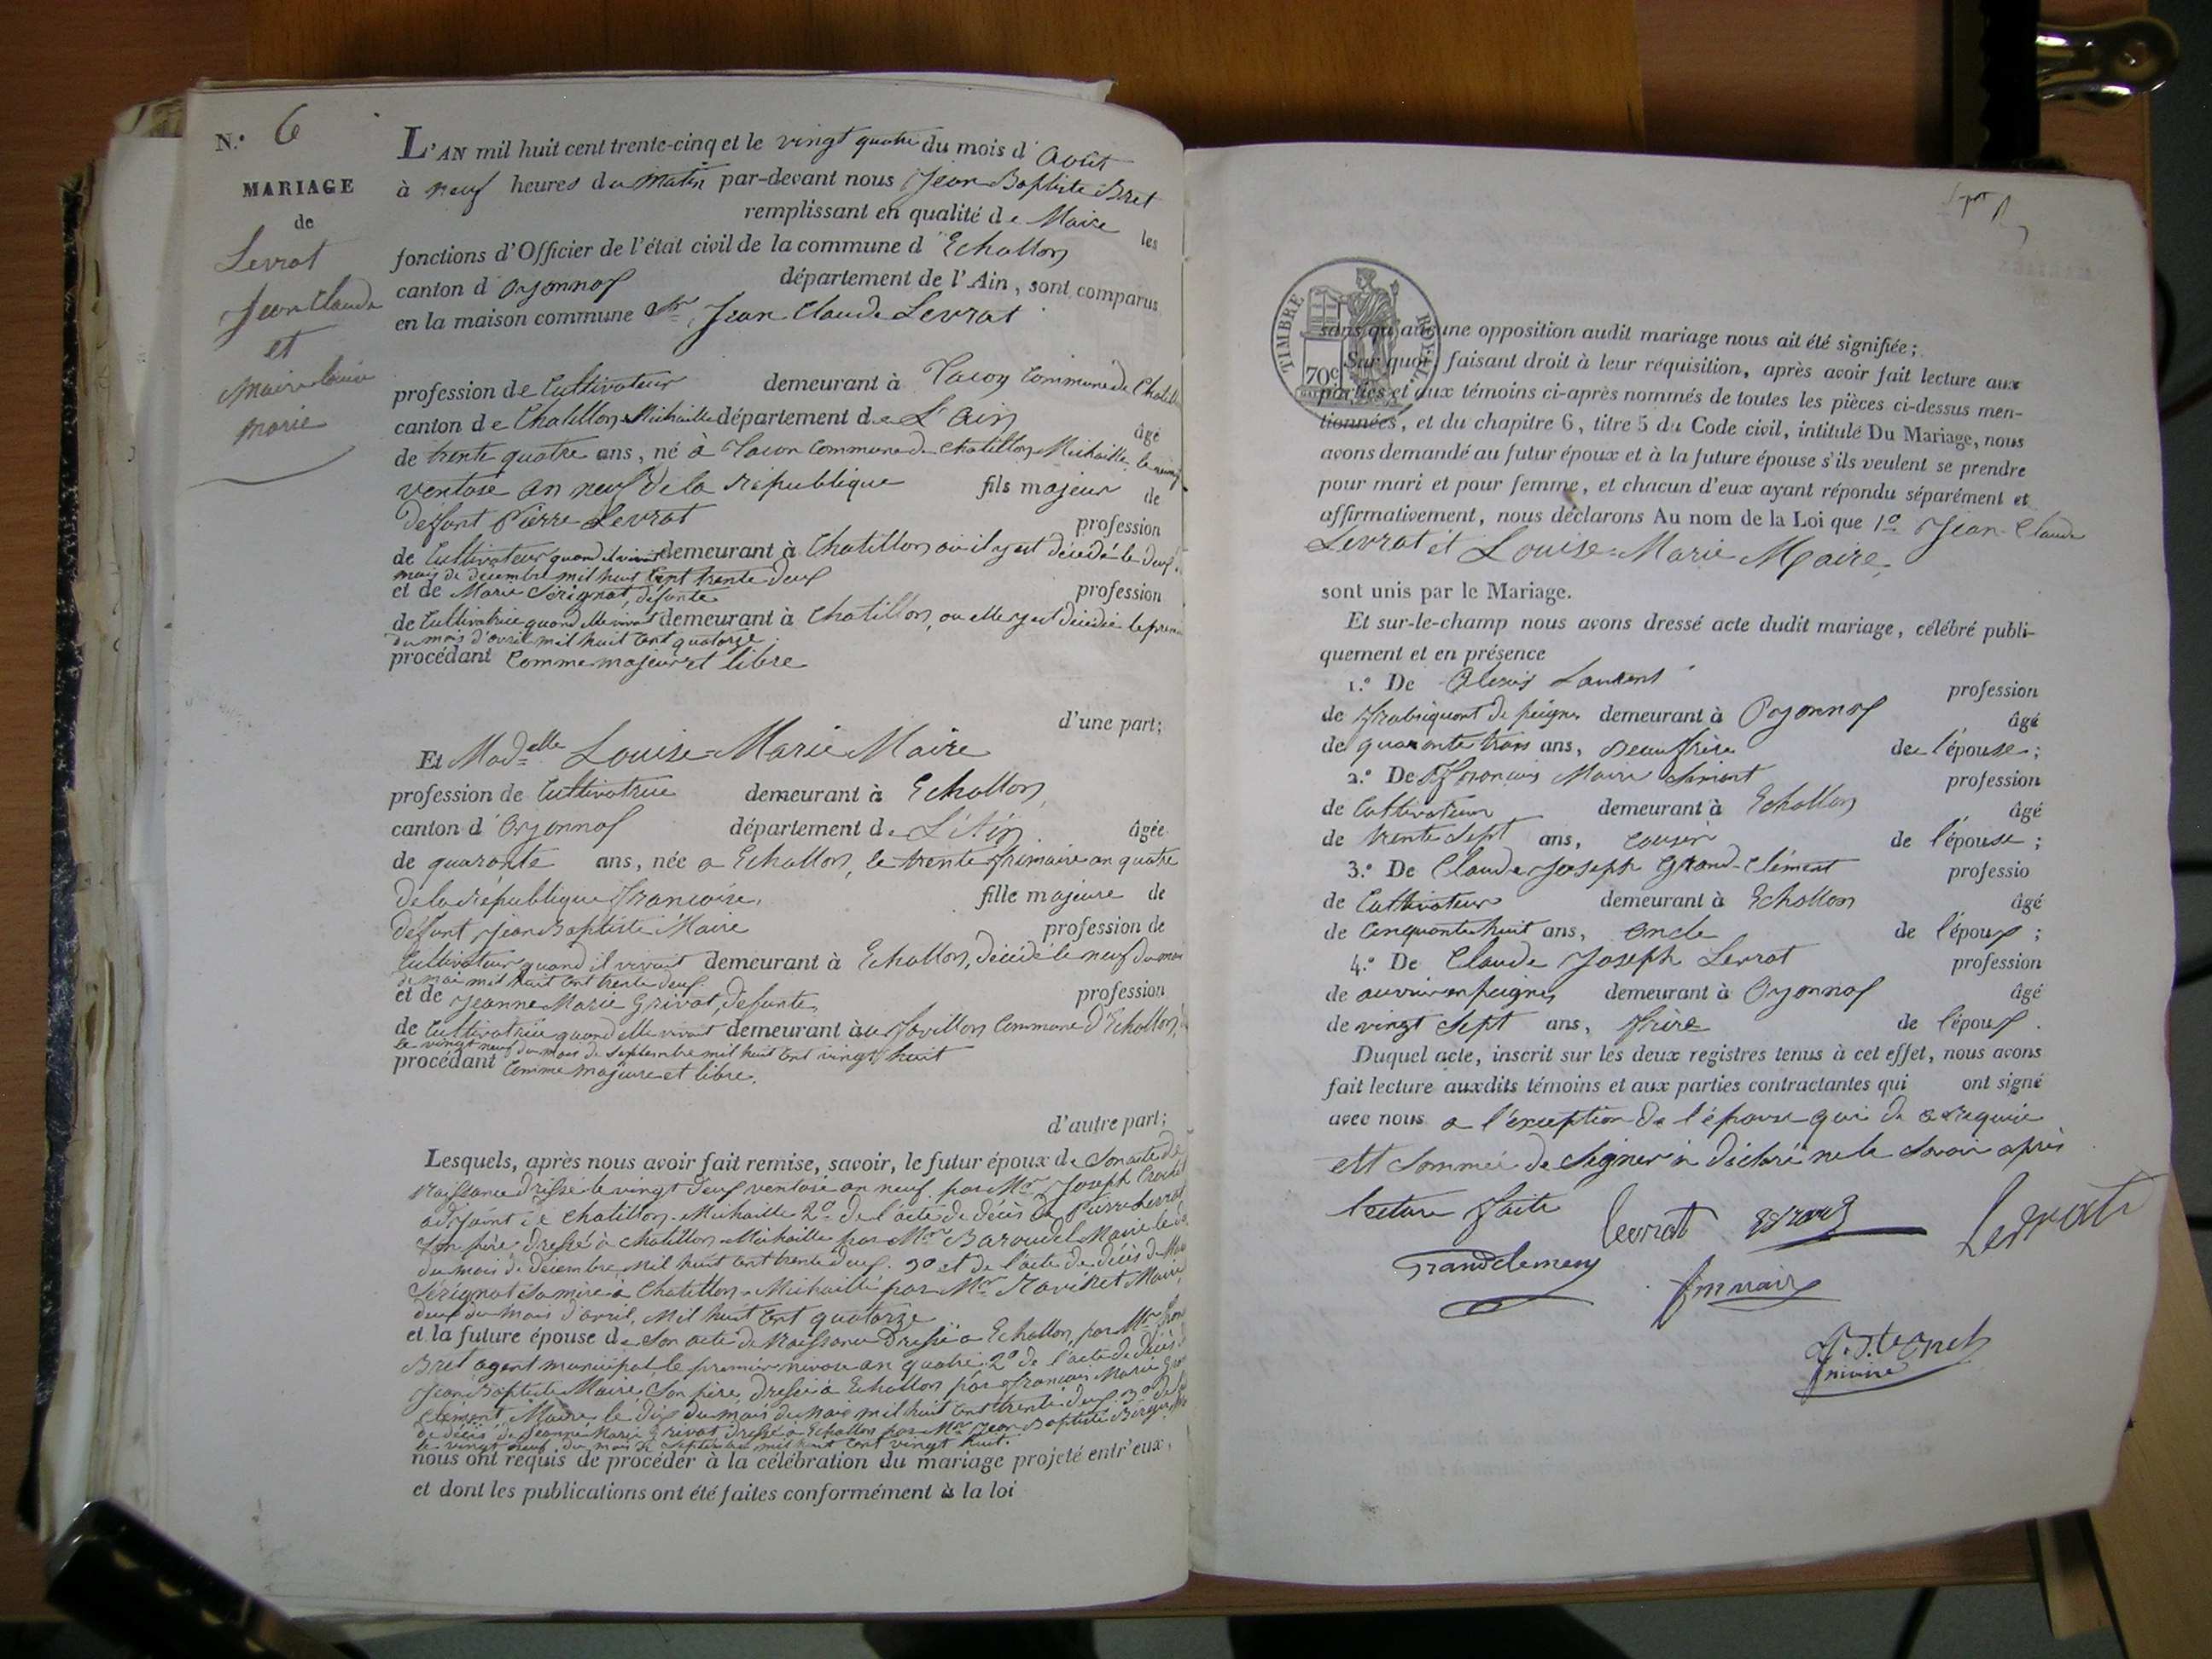 N.º 6
MARIAGE
de
Levrat
Jean Claude
et
Maire Louise
Marie
L'AN mil huit cent trente-cinq et le vingt quatre du mois d'Août
à neuf heures du matin par-devant nous Jean Baptiste Bret
remplissant en qualité de Maire les
fonctions d'Officier de l'état civil de la commune d'Echallon
canton d'Oyonnax département de l'Ain, sont comparus
en la maison commune Mr Jean Claude Levrat
profession de Cultivateur demeurant à Tacon Commune de Chatill
canton de Chatillon Michaille département de L'Ain âgé
de trente quatre ans, né à Tacon Commune de Chatillon Michaille, le
ventose an neuf de la république fils majeur de
deffunt Pierre Levrat profession
de Cultivateur quand il vivait demeurant à Chatillon où il y est décédé le deux
mois de decembre mil huit cent trente deux
et de Marie Sérignat, défunte profession
de Cultivatrice quand elle vivait demeurant à Chatillon, ou elle y est décédée le
du mois d'avril mil huit cent quatorze
procédant Comme majeur et libre
d'une part;
Et Madelle Louise-Marie Maire
profession de Cultivatrice demeurant à Echallon,
canton d'Oyonnax département de L'Ain. âgée
de quarante ans, née a Echallon, le trente frimaire an quatre
de la république francaise, fille majeure de
deffunt Jean Baptiste Maire profession de
Cultivateur quand il vivait demeurant à Echallon, décédé le neuf du mois
de mai mil huit cent trente deux.
et de Jeanne Marie Grivat, defunte, profession
de Cultivatrice quand elle vivait demeurant à Commune d'Echallon,
le vingt neuf du mois de Septembre mil huit cent vingt huit
procédant Comme majeure et libre.
d'autre part;
Lesquels, après nous avoir fait remise, savoir, le futur époux de Son acte de
naissance dressé le vingt deux ventose an neuf. par Mr Joseph
adjoint de Chatillon-Michaille 2º de l'acte de décès de Pierre Levrat
son père dressé à Chatillon-Michaille par Mr Baroudel Maire le
du mois de décembre mil huit cent trente deux. 3º et de l'acte de décès de
Sérignat sa mère à Chatillon-Michaille par Mr Ravinet Maire
deux du mois d'avril, mil huit cent quatorze
et la future épouse de Son acte de naissance dressé a Echallon, par Mr
Bret agent municipal, le premier nivose an quatre. 2º de l'acte de décès
Jean Baptiste Maire, Son père, dressé à Echallon par François Marie
Clément, Maire le dix du mois de mai mil huit cent trente deux. 3º
de décès de Jeanne Marie Grivat dressé à Echallon par Mr Jean Baptiste
le vingt neuf du mois de Septembre mil huit cent vingt huit.
nous ont requis de procéder à la célébration du mariage projeté entr'eux,
et dont les publications ont été faites conformément à la loi
TIMBRE ROYAL
70c
sans qu'aucune opposition audit mariage nous ait été signifiée;
Sur quoi, faisant droit à leur réquisition, après avoir fait lecture aux
parties et aux témoins ci-après nommés de toutes les pièces ci-dessus men-
tionnées, et du chapitre 6, titre 5 du Code civil, intitulé Du Mariage, nous
avons demandé au futur époux et à la future épouse s'ils veulent se prendre
pour mari et pour femme, et chacun d'eux ayant répondu séparément et
affirmativement, nous déclarons Au nom de la Loi que 1º Jean-Claude
Levrat et Louise-Marie Maire,
sont unis par le Mariage.
Et sur-le-champ nous avons dressé acte dudit mariage, célébré publi-
quement et en présence
1.º De Alexis Laurent profession
de fabriquant de peignes demeurant à Oyonnax âgé
de quarante trois ans, Beaufrère de l'épouse;
2.º De François Maire profession
de Cultivateur demeurant à Echallon âgé
de trente Sept ans, cousin de l'épouse;
3.º De Claude Joseph Grand-Clément professio
de Cultivateur demeurant à Echallon âgé
de Cinquante huit ans, oncle de l'époux;
4.º De Claude Joseph Levrat profession
de ouvrier en peignes demeurant à Oyonnax âgé
de vingt Sept ans, frère de l'époux.
Duquel acte, inscrit sur les deux registres tenus à cet effet, nous avons
fait lecture auxdits témoins et aux parties contractantes qui ont signé
avec nous a l'exception de l'épouse qui de ce requise
ett Sommée de Signer a déclaré ne le Savoir après
lecture faite
Levrat
Levrat
Grandclement
fmmaire